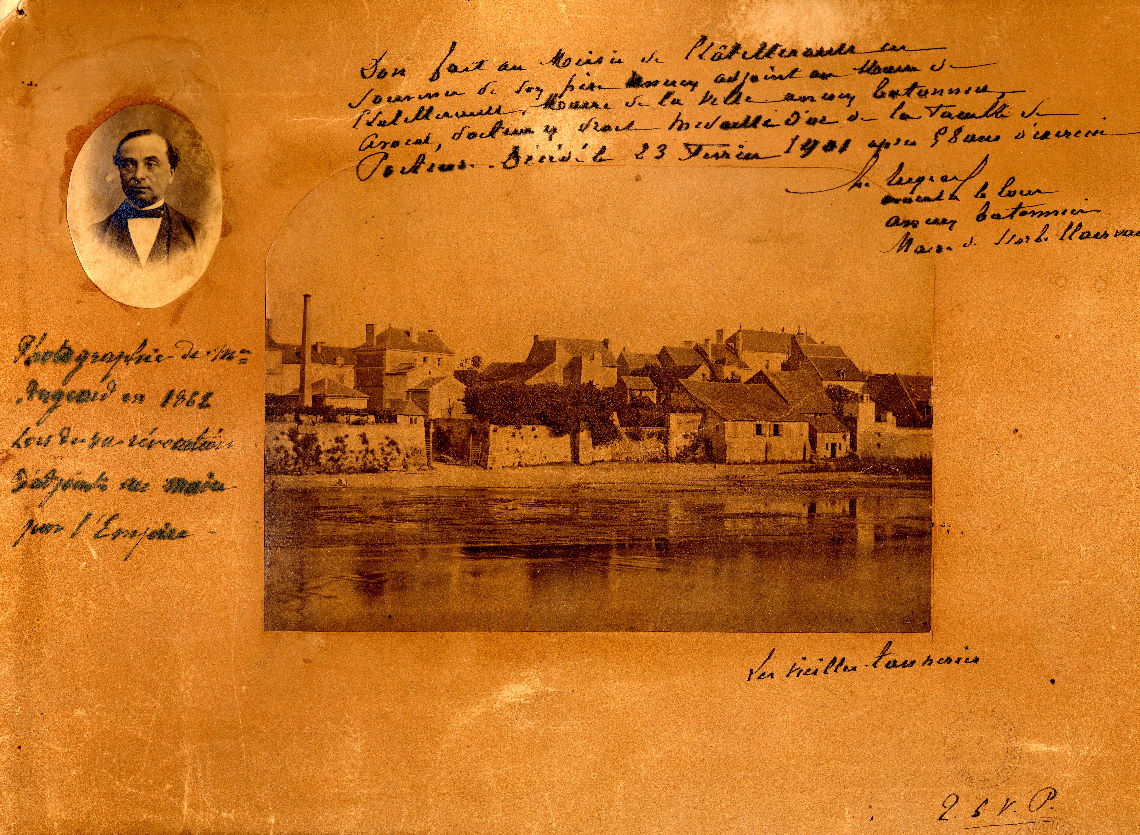 Don fait au Musée de Châtellerault en
souvenir de son père ancien adjoint au Maire de
Chatellerault, Maire de la ville ancien batonnier,
avocat, docteur en droit Médaille d'or de la Faculté de
Poitiers. Décédé le 23 Février 1901 après 58 ans d'exercice
avocat à la Cour
ancien batonnier
Maire de
Photographie de Mr
en 1862
Lors de sa révocation
D'adjoint au maire
par l'Empire -
Les vieilles tanneries
T. S. V. P.